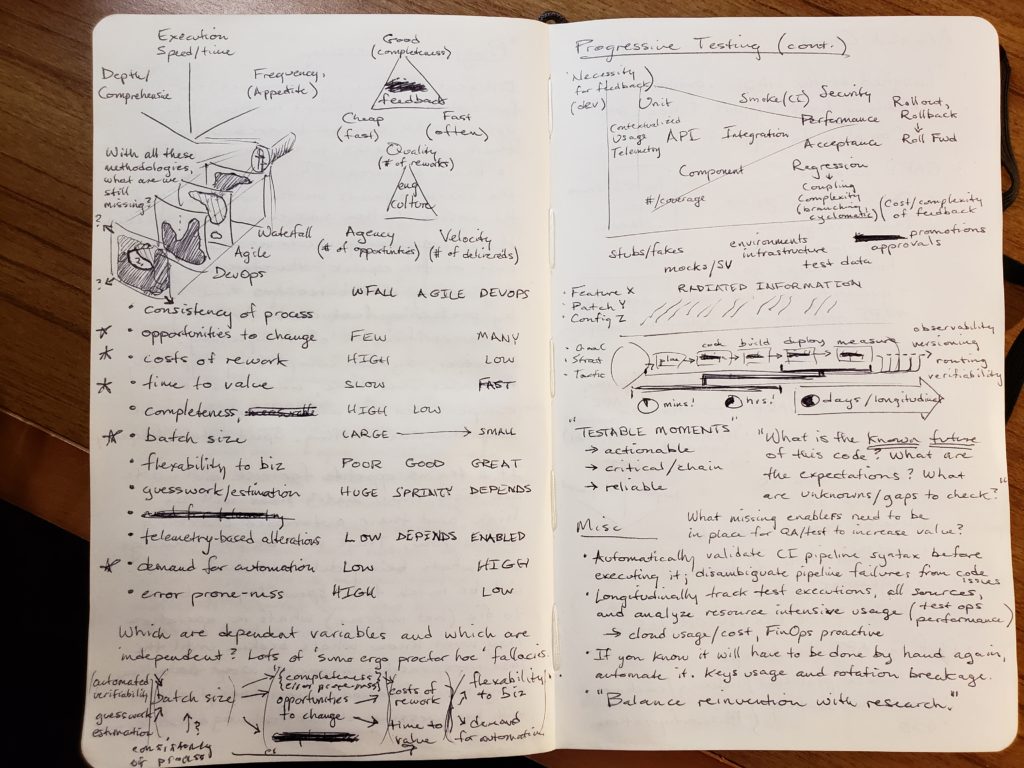 Execution
Speed/time
Depth/
Comprehensive
Frequency,
(Appetite)
With all these
methodologies,
what are we
still
missing?
?
?
Waterfall
Agile
DevOps
Good
(completeness)
feedback
Cheap
(fast)
Fast
(often)
Quality
(# of reworks)
eng
culture
Agency
(# of opportunities)
Velocity
(# of delivereds)
WFALL AGILE DEVOPS
• consistency of process
• opportunities to change FEW MANY
• costs of rework HIGH LOW
• time to value SLOW FAST
• completeness, HIGH LOW
• batch size LARGE → SMALL
• flexability to biz POOR GOOD GREAT
• guesswork/estimation HUGE SPRINTY DEPENDS
• telemetry-based alterations LOW DEPENDS ENABLED
• demand for automation LOW HIGH
• error prone-ness HIGH LOW
Which are dependent variables and which are
independent? Lots of 'sumo ergo proctor hoc' fallacies.
automated
verifiability
guesswork
estimation
batch size
?
consistency
of process
completeness?
error prone-ness?
opportunities
to change
costs of
rework
time to
value
flexability
to biz
demand
for automation
Progressive Testing (cont.)
Necessity
for feedback
(dev)
Unit
Smoke/(CI)
Security
Contextualized
Usage
Telemetry
API
Integration
Performance
Acceptance
Rollout,
Rollback
↓
Roll Fwd
Component
Regression
↓
Coupling
Complexity
(branching,
cyclomatic)
#/coverage
(Cost/complexity
of feedback
stubs/fakes
mocks/SV
environments
infrastructure
test data
promotions
approvals
• Feature X
• Patch Y
• Config Z
RADIATED INFORMATION
• Goal
• Strat
• Tactic
plan
code
build
deploy
measure
observability
versioning
routing
verifiability
mins!
hrs!
days/longitudinal
"TESTABLE MOMENTS"
→ actionable
→ critical/chain
→ reliable
"What is the known future
of this code? What are
the expectations? What
are unknowns/gaps to check?"
What missing enablers need to be
in place for QA/test to increase value?
Misc
• Automatically validate CI pipeline syntax before
executing it; disambiguate pipeline failures from code
issues
• Longitudinally track test executions, all sources,
and analyze resource intensive usage (test ops
performance)
→ cloud usage/cost, FinOps proactive
• If you know it will have to be done by hand again,
automate it. Keys usage and rotation breakage.
• "Balance reinvention with research."